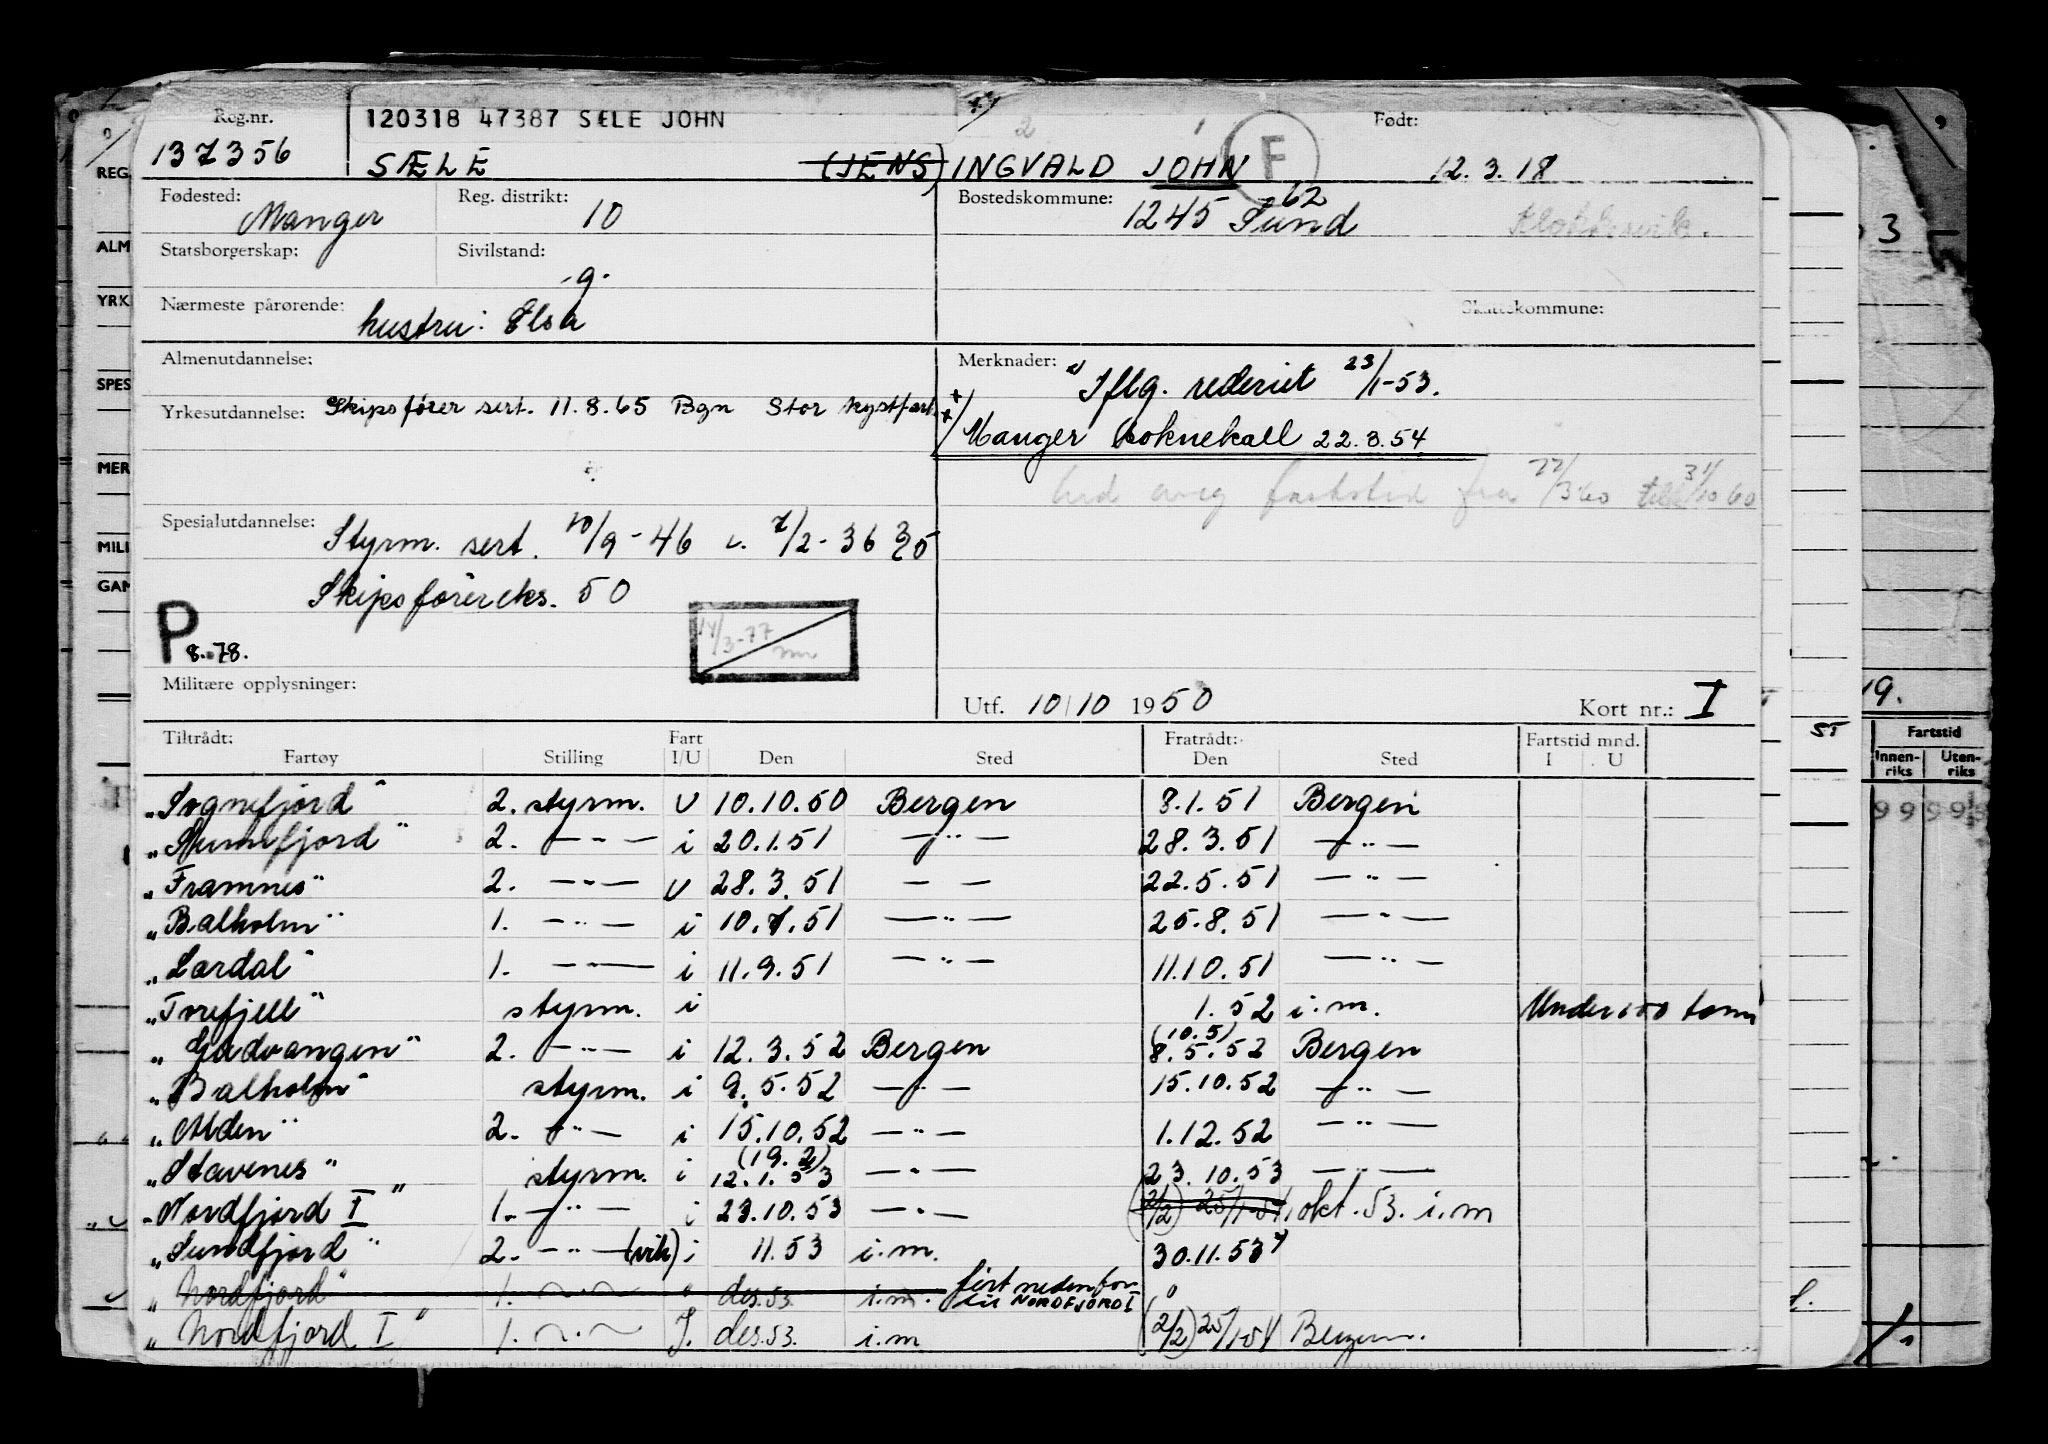 Reg.nr. 120318 47387 SÆLE JOHN Født:
137356 SÆLE (JENS) INGVALD JOHN F 12.3.18
Fødested: Manger Reg. distrikt: 10 Bostedskommune: 1245 Sund 62
Statsborgerskap: Sivilstand: g.
Nærmeste pårørende: hustru: Elsa Skattekommune:
Almenutdannelse: Merknader: Iflg. rederiet 23/1-53.
Yrkesutdannelse: Skipsfører sert. 11.8.65 Bgn Stor kystfart
Manger 22.3.54
fartstid fra 3.60 till 31/10 60
Spesialutdannelse: Styrm. sert. 10/9-46 7/2-36
Skipsførereks. 50
P 8.-78.
14/3-77
Militære opplysninger:
Utf. 10/10 1950 Kort nr.: I
Tiltrådt: Fart Fratrådt: Fartstid mnd.
Fartøy Stilling I/U Den Sted Den Sted I U
"Sognefjord" 2. styrm. U 10.10.50 Bergen 8.1.51 Bergen
"Sunnfjord" 2. —"— i 20.1.51 —"— 28.3.51 —"—
"Framnes" 2. —"— U 28.3.51 — — 22.5.51 —"—
"Balholm" 1. —"— i 10.7.51 —"— 25.8.51 —"—
"Lærdal" 1. —"— i 11.9.51 —"— 11.10.51 —"—
"Torefjell" styrm. i 1.52 i.m. Under 100 tonn
"Gudvangen" 2. —"— i 12.3.52 Bergen (10.5) 8.5.52 Bergen
"Balholm" styrm. i 9.5.52 —"— 15.10.52 —"—
"Alden" 2. —"— i 15.10.52 —"— 1.12.52 —"—
"Stavenes" styrm. i (19.2) 12.1.53 —"— 23.10.53 —"—
"Nordfjord I" 1. —"— i 23.10.53 —"— (2/2) 25/1-54 okt. 53. i.m
"Sunnfjord" 2. —"— (vik) i 11.53 i.m. 30.11.53
"Nordfjord" 1. —"— " des. 53 i.m. ført nedenfor
NORDFJORD I
"Nordfjord I" 1. —"— I. des. 53. i.m (2/2) 25/1-54 Bergen.
REG.
ALM
YRK
SPES
MER
MILI
GAM
3
19.
Fartstid
Innen-riks Uten-riks